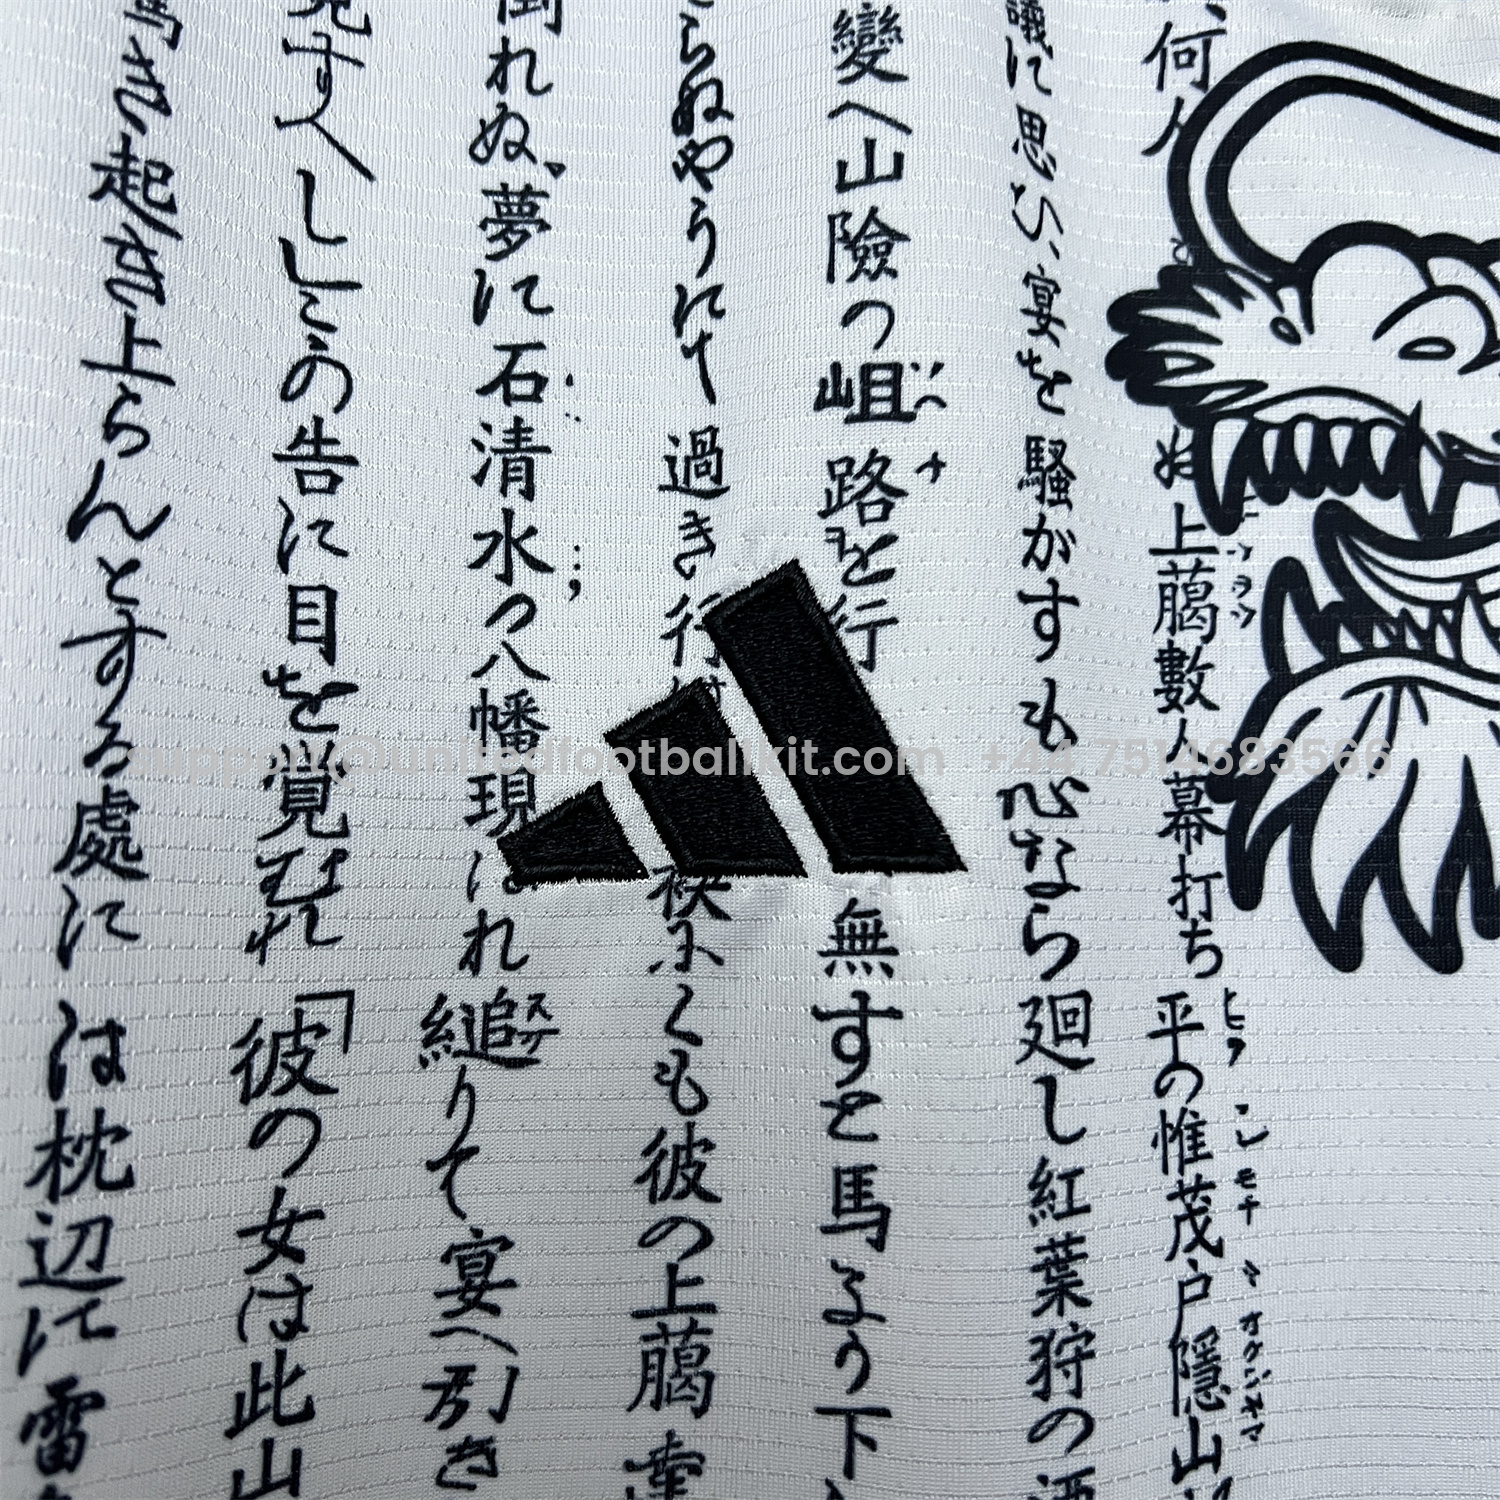 何人
ぬ上﨟數人幕打ち平の惟茂戸隱山
ヒラ
コレモチ
トガクシヤマ
議に思ひ、宴を騷がすも心なら廻し紅葉狩の酒
變へ山險の岨路を行
無すと馬より下
らぬやうにて過き行
くも彼の上﨟
倒れぬ、夢に石清水の八幡現はれ
縋りて宴へ引き
スガ
見す人しこの告に目を覚むれ「彼の女は此山
き起き上らんとする處には枕辺に雷
support@unitedfootballkit.com +44 7514683566